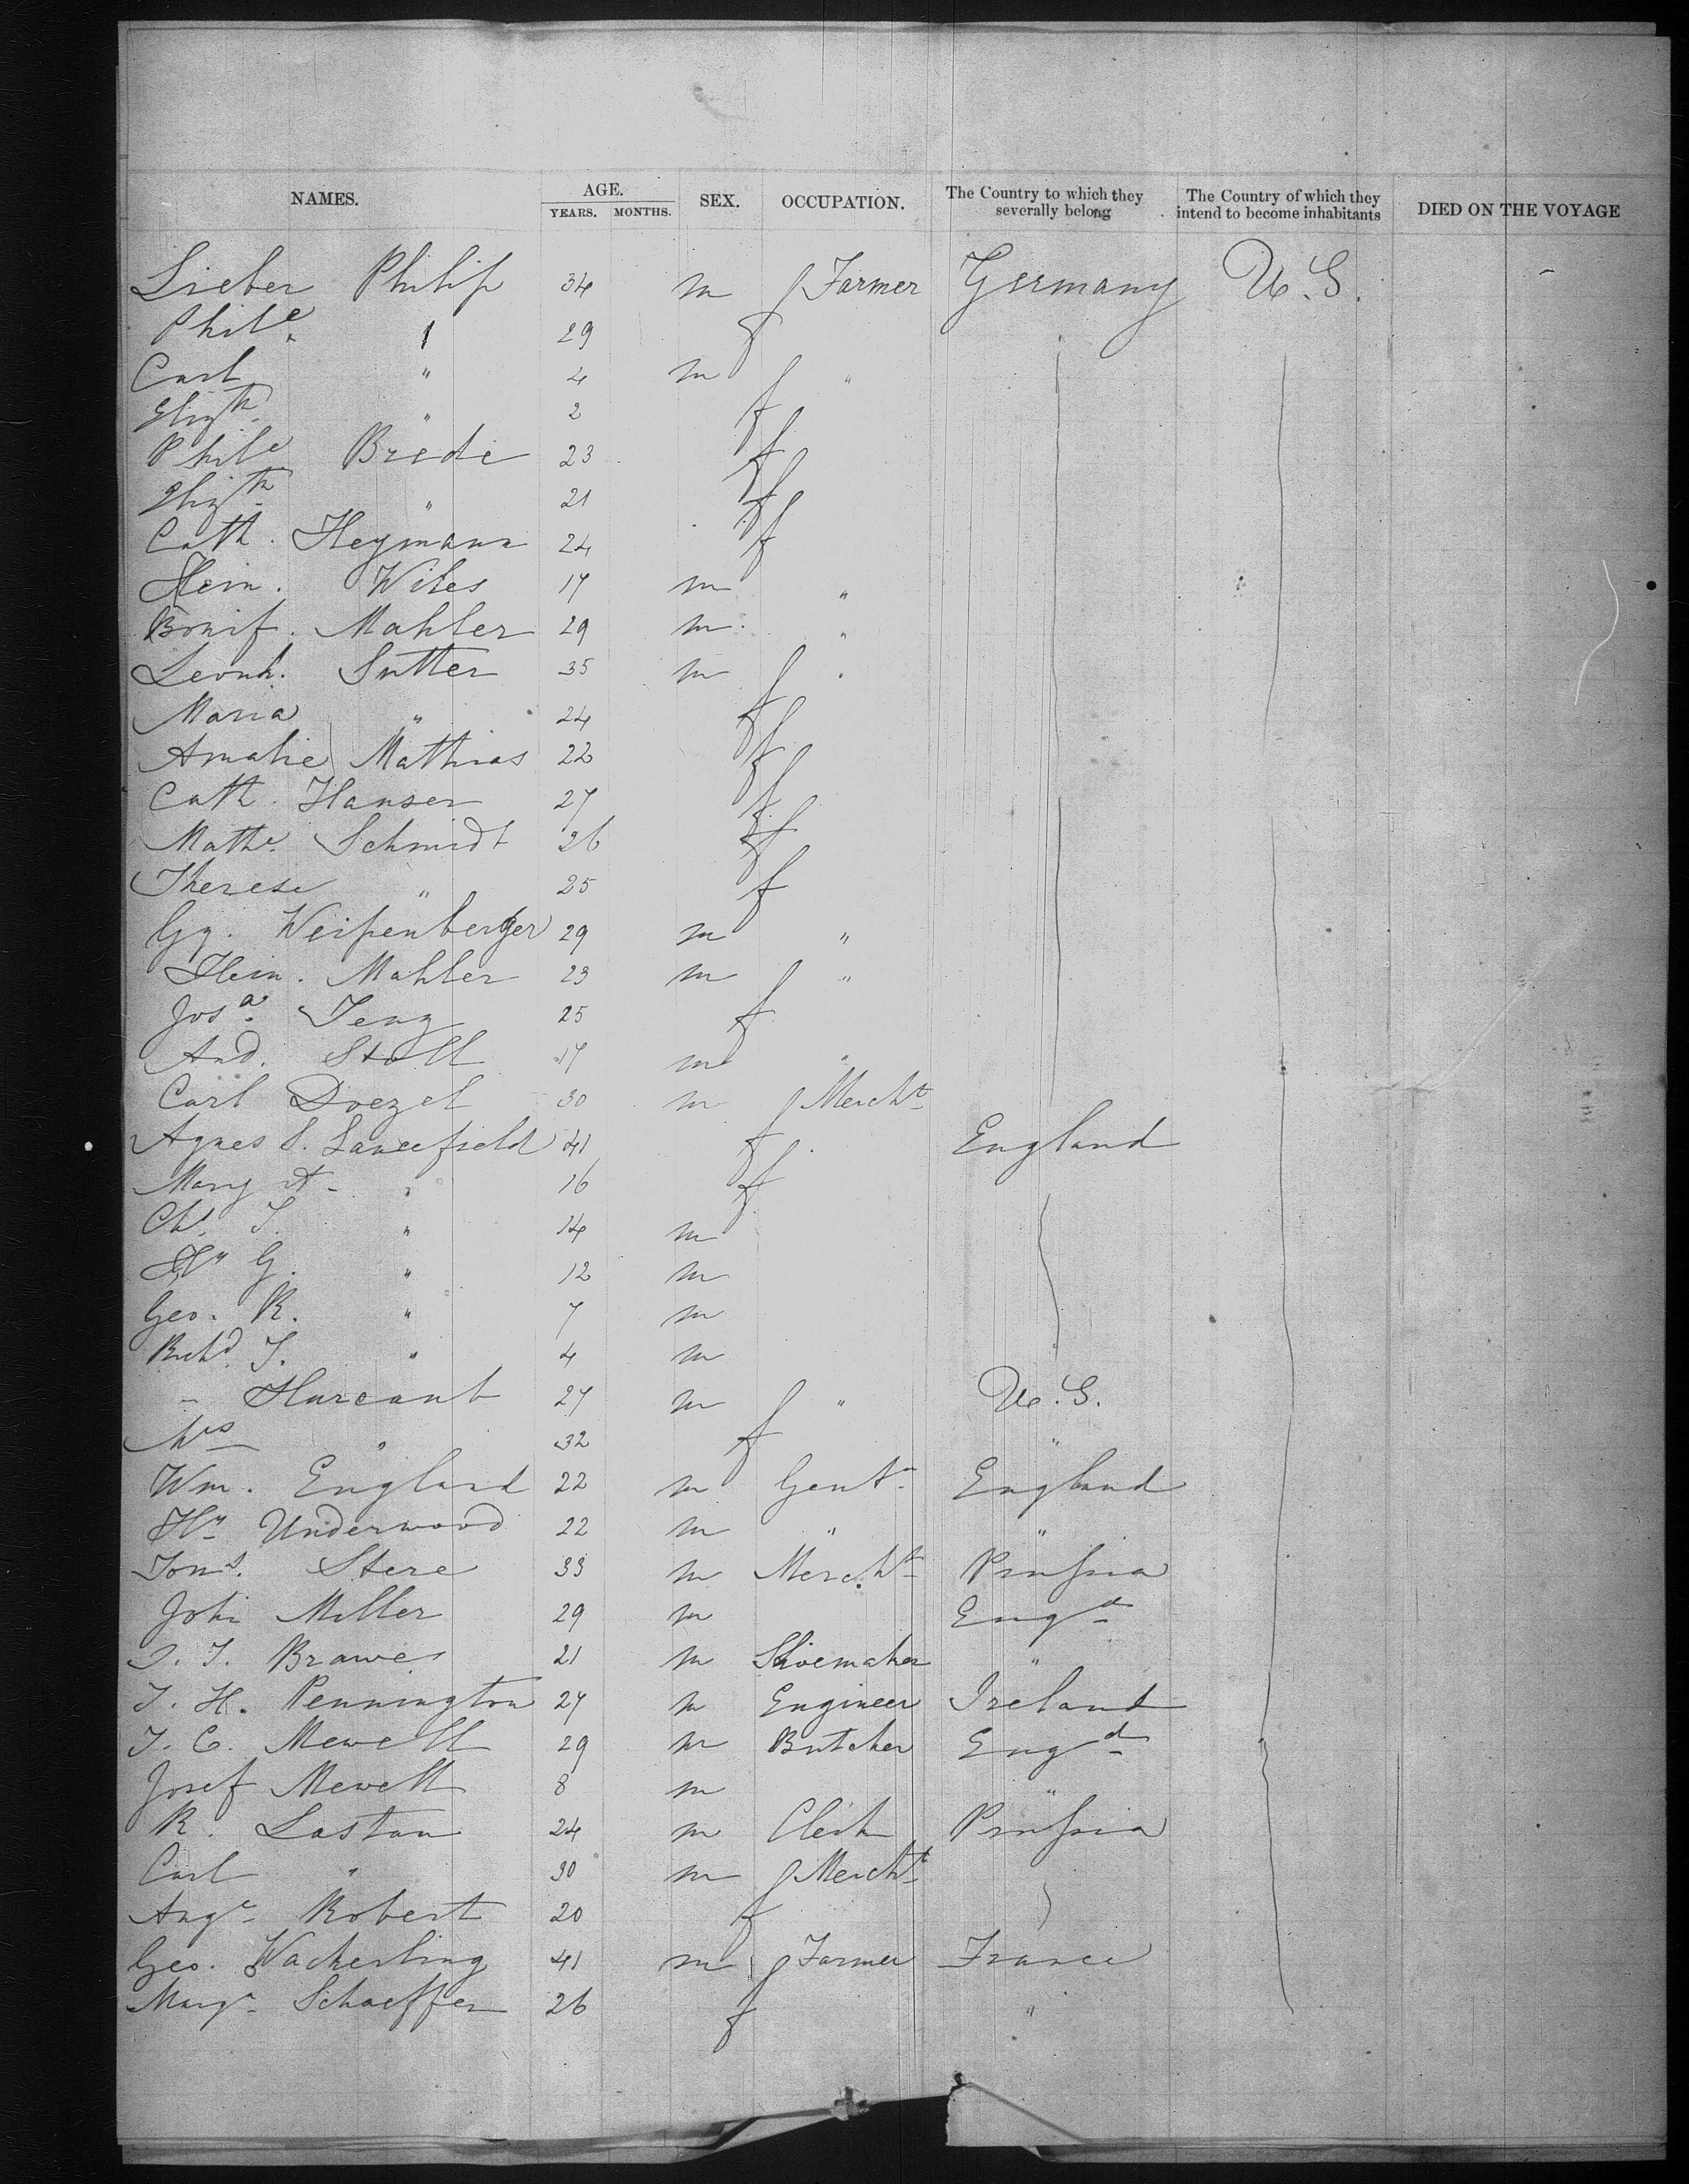 NAMES. AGE. YEARS. MONTHS. SEX. OCCUPATION. The Country to which they severally belong The Country of which they intend to become inhabitants DIED ON THE VOYAGE
Lieber Philip 34 m Farmer Germany U.S.
Phile. " 29 f
Carl " 4 m "
Elizth. " 2 f
Phile Brede 23 f
Elizth. " 21 f
Cath. Heymann 24 f
Hein. Wiles 17 m "
Bonif. Mahler 29 m "
Leonh. Sutter 35 m "
Maria " 24 f
Amalie Mathias 22 f
Cath. Hanser 27 f
Mathe. Schmidt 26 f
Therese " 25 f
Gg. Weißenberger 29 m "
Hein. Mahler 23 m "
Josa. Jeng 25 f
And. Stoll 17 m "
Carl Doezel 30 m Mercht
Agnes S. Lancefield 41 f England
Mary A. " 16 f
Chs. T. " 14 m
Hy G. " 12 m
Geo. R. " 7 m
Richd. T. " 4 m
- Hurcanb 27 m " U.S.
Mrs " 32 f "
Wm. England 22 m Gent. England
Hy Underwood 22 m " "
Jons. Stere 33 m Mercht Prußia
John Miller 29 m Engd
J. T. Brawes 21 m Shoemaker "
J. H. Pennington 27 m Engineer Ireland
J. C. Mewell 29 m Butcher Engd
Josef Mewell 8 m "
R. Lastan 24 m Clerk Prußia
Carl " 30 m Mercht
Auge. Robert 20 f
Geo. Wackerling 41 m Farmer France
Margr. Schaeffer 26 f "